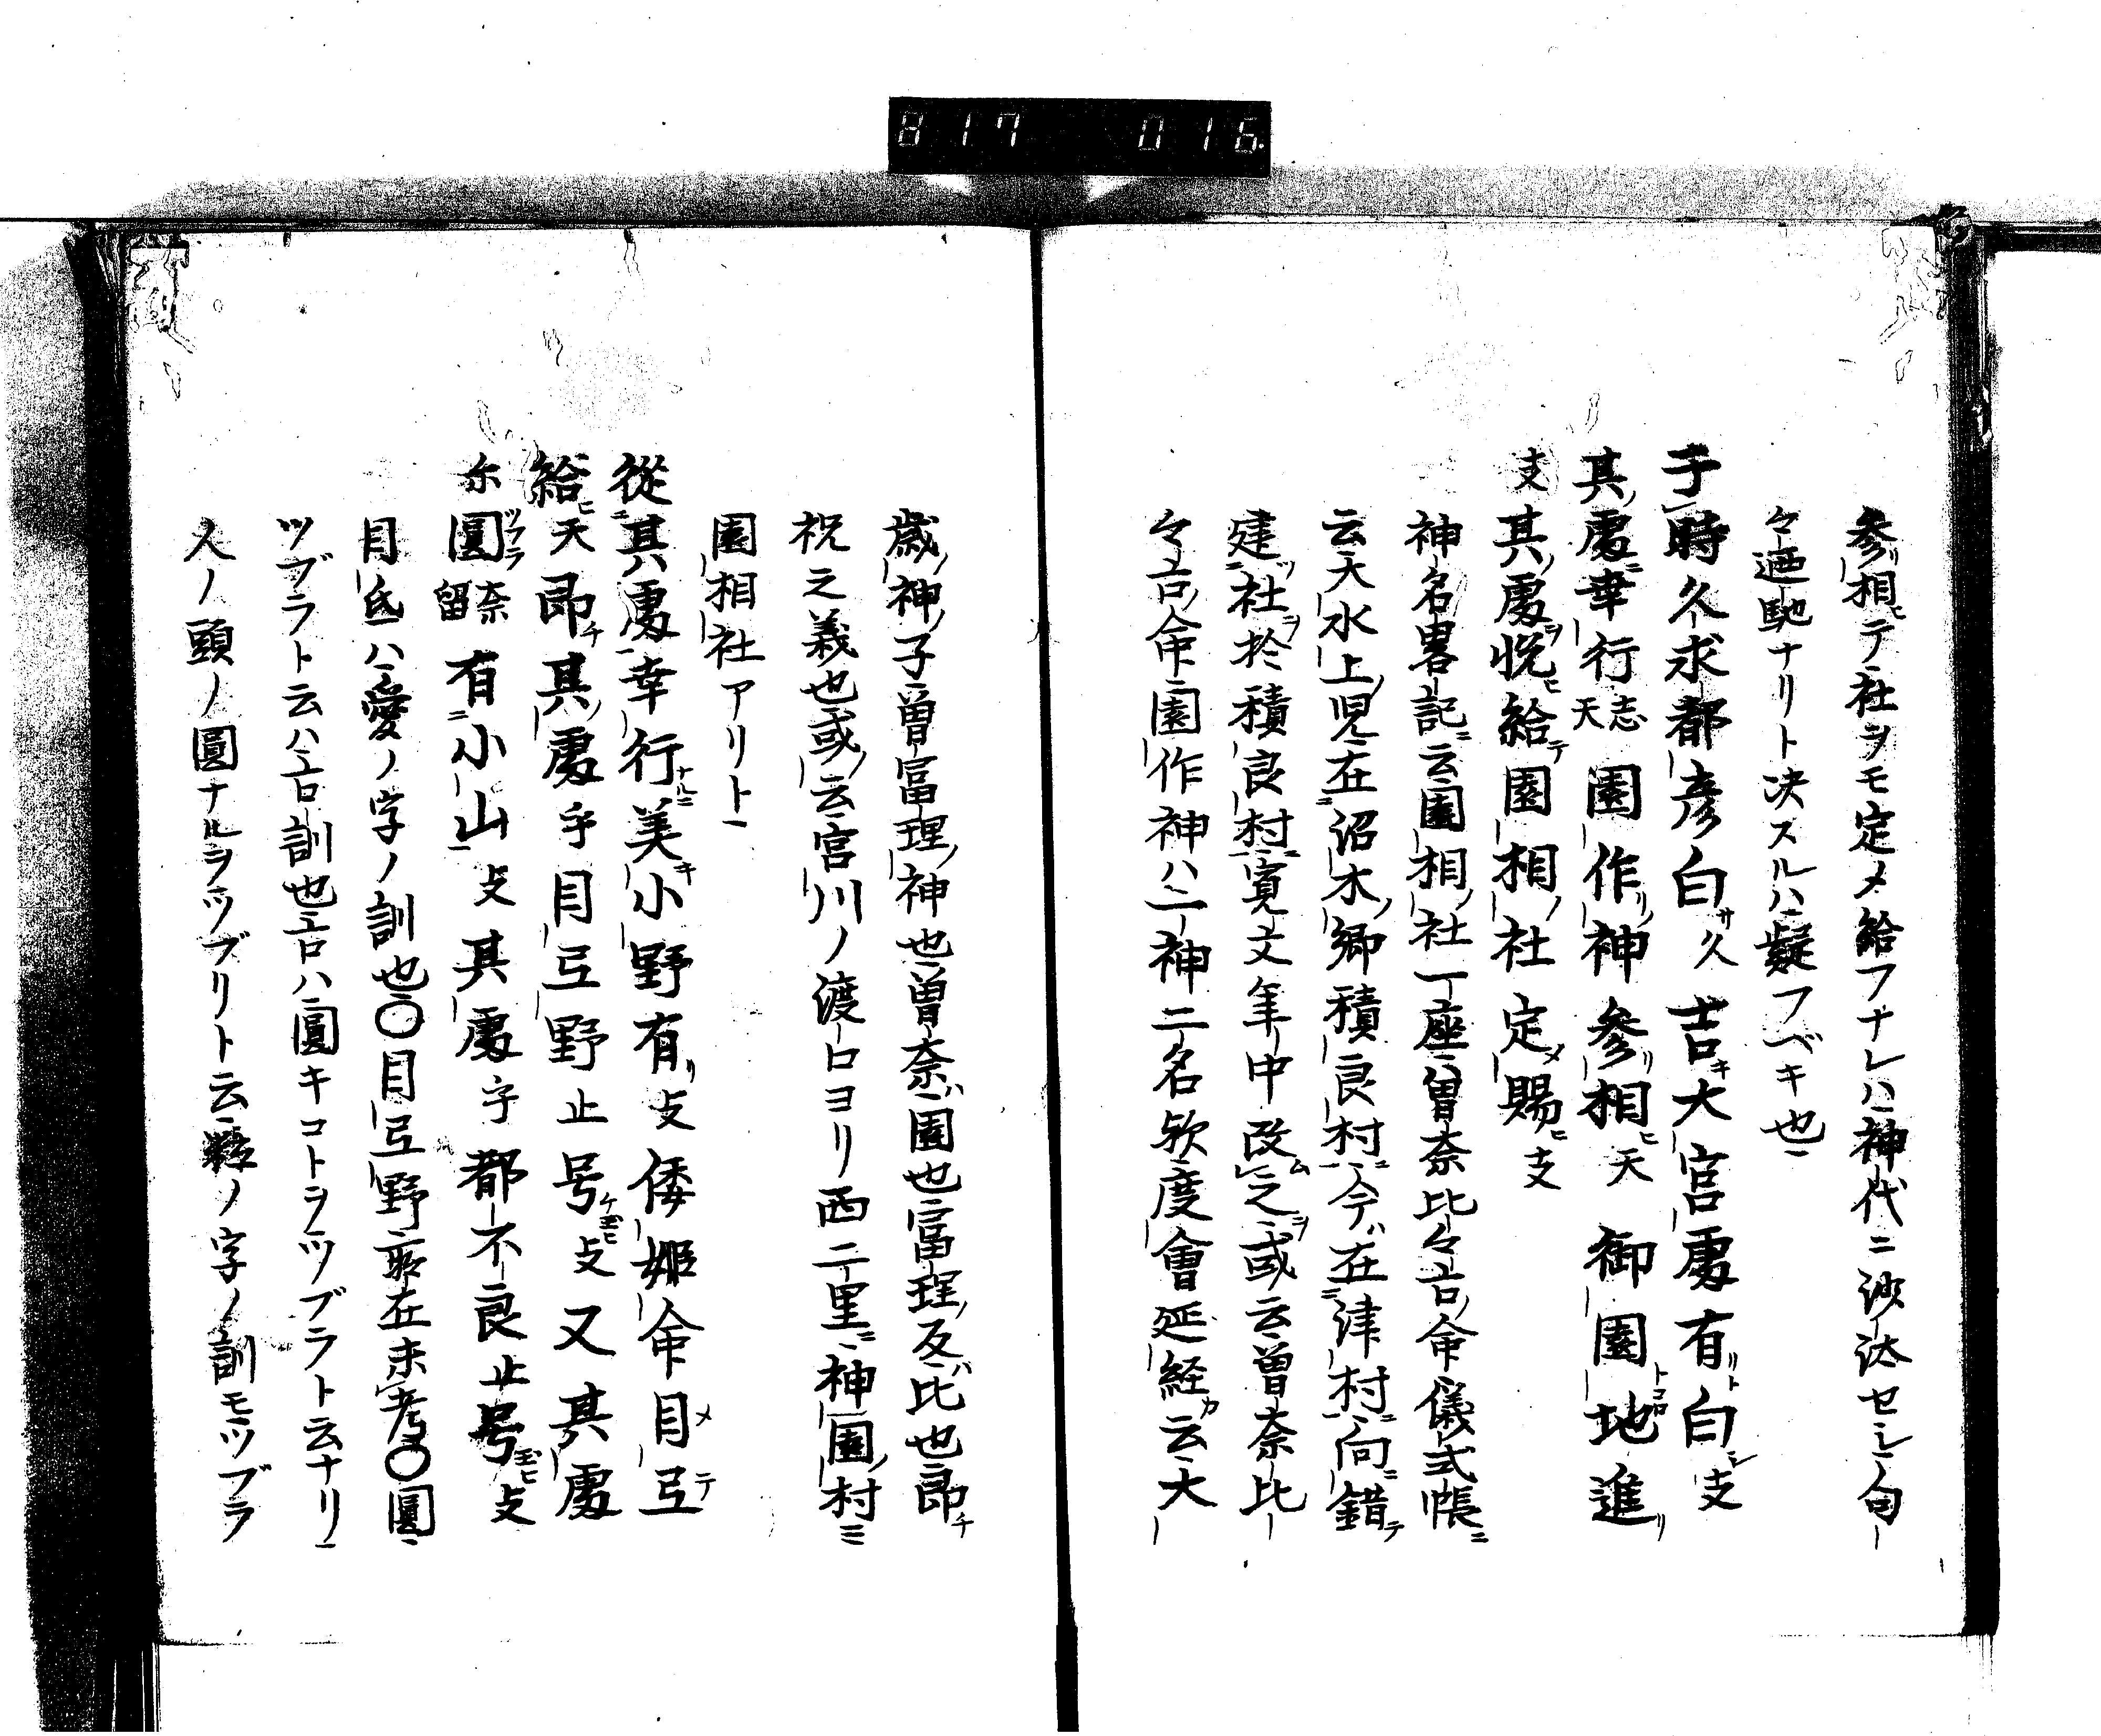 817 016
参相テ社ヲモ定メ給フナレハ神代ニ沙汰セシ旬
々迺馳ナリト決スルハ疑フベキ也
于時久求都彦白久吉大宮處有白支
其處幸行志天園作神参相天御園地進
支其處悦給園相社定賜支
神名畧記云園相社一座曽奈比々古命儀式帳
云大水上児在沼木郷積良村今在津村向錯
建社於積良村寛文年中改之或云曽奈比
々古命園作神ハ一神二名欤度會延経云大
歳神子曽冨理神也曽奈園也冨理反比也即
祝之義也或云宮川ノ渡口ヨリ西二里神園村ニ
園相社アリト
從其處幸行美小野有支倭姫命目弖
給天即其處乎目弖野止号支又其處
尓圓奈留有小山支其處乎都不良止号支
目弖ハ愛ノ字ノ訓也〇目弖野所在未考〇圓
ツブラト云ハ古訓也古ハ圓キコトヲツブラト云ナリ
人ノ頭ノ圓ナルヲツブリト云ノ字ノ訓モツブラ